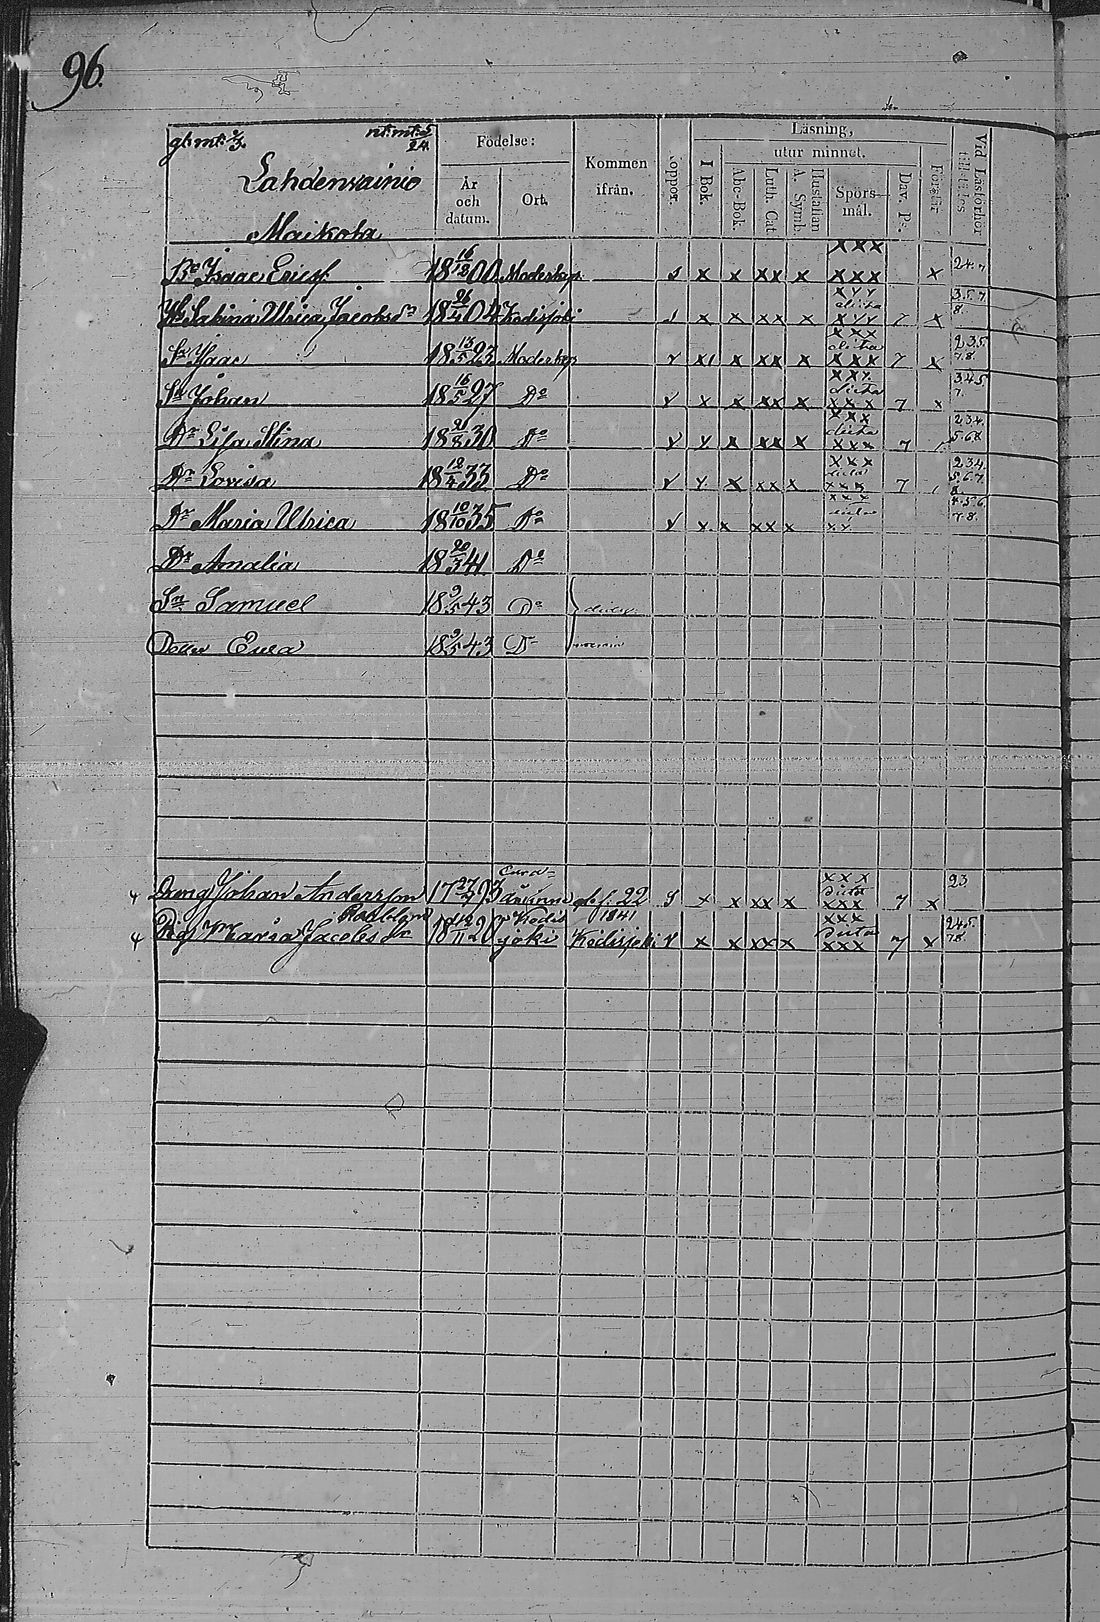 96.
gl. mt. 2/3 nt. mt. 5/24
Lahdenvainio
Maikola
Födelse: År och datum. Ort. Kommen ifrån. Koppor. Läsning, I Bok. utur minnet. Abc-Bok. Luth. Cat. A. Symb. Hustaflan Spörsmål. Dav. Ps. Förstår Vid Läsförhör
Bo Isaac Ericsf. 18 16/12 00 Moderkp s x x xx x xxx xxx x 24.7
Hu Sabina Ulrica Jacobsdr 18 26/4 04 Kodisjoki s x x xx x xyy dito xyy 7 x 3.5.7 8.
Sn Isaac 18 13/5 23 Moderkp v x x xx x xxx dito xxx 7 x 2.3.5. 7.8.
Sn Johan 18 16/5 27 Do v x x xx x xxx dito xxx 7 x 3.4.5 7.
Dr Lisa Stina 18 21/8 30 Do v x x xx x xxx dito xxx 7 2.3.4. 5.6.8.
Dr Lovisa 18 12/4 33 Do v x x xx x xxx dito xxx 7 2.3.4. 5.6.7. 8.
Dr Maria Ulrica 18 10/10 35 Do v x x xx x xxx dito xx 4.5.6. 7.8.
Dr Amalia 18 20/3 41 Do
Sn Samuel 18 9/5 43 Do
Dotter Eva 18 9/5 43 Do
Dreng Johan Andersson 17 27/7 93 Eura-åminne gl. f. 22 s x x xx x xxx dito xxx 7 x 23
Pig. Maria Jacobsdr 18 12/11 20 Kodisjoki 1841 Kodisjoki v x x xx x xxx dito xxx 7 x 2.4.5. 7.8.